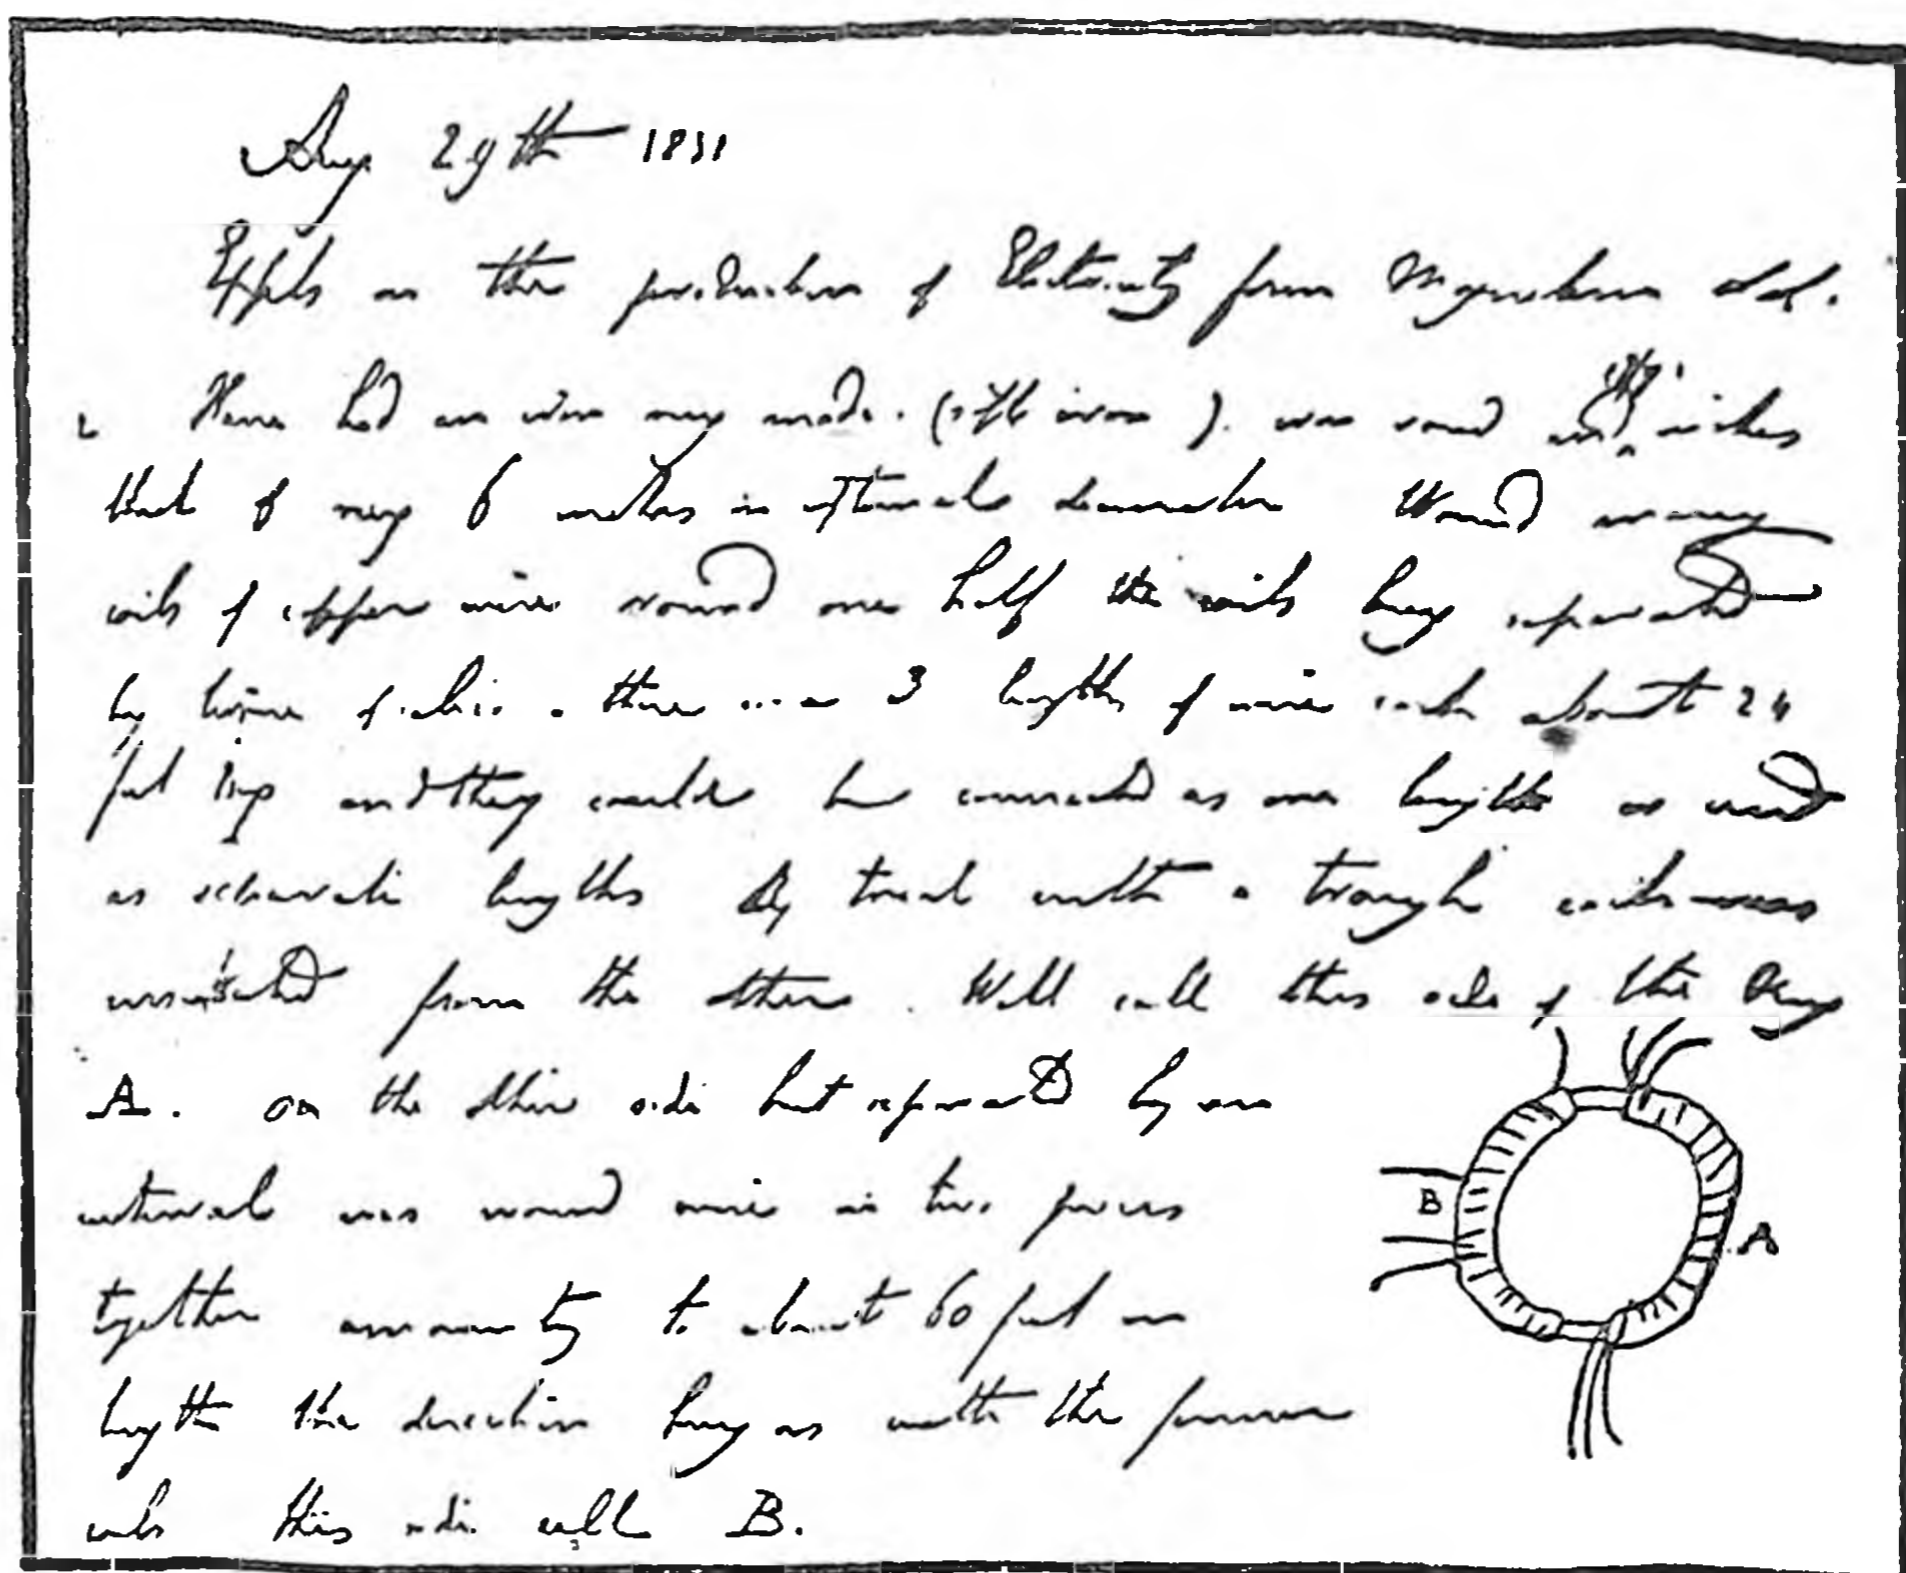 Aug 29th 1831
Expts on the production of Electricity from Magnetism etc.
Have had an iron ring made (soft iron). iron round and inches
thick & ring 6 inches in external diameter Wound many
coils of copper wire round one half the coils being separated
by twine & calico - there were 3 lengths of wire each about 24
feet long and they could be connected as one length or used
as separate lengths By trial with a trough each was
insulated from the other. Will call this side of the Ring
A. on the other side but separated by an
interval was wound wire in two pieces
together amounting to about 60 feet in
length the direction being as with the former
coils this side call B.
B
A